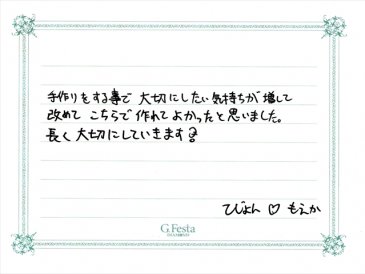 手作りをする事で 大切にしたい気持ちが増して
改めて こちらで作れてよかったと思いました。
長く大切にしていきます
ひょん ♡ もえか
G.Festa